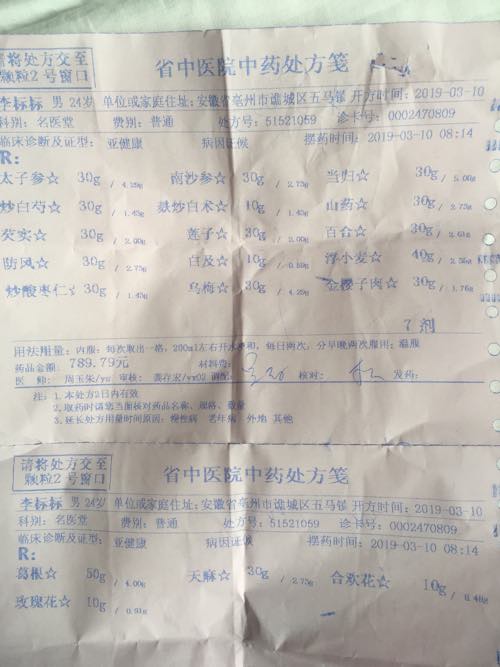 请将处方交至
颗粒2号窗口
省中医院中药处方笺
李标标 男 24岁 单位或家庭住址:安徽省亳州市谯城区五马镇 开方时间:2019-03-10
科别:名医堂 费别:普通 处方号:51521059 诊卡号:0002470809
临床诊断及证型:亚健康 病因证候 摆药时间:2019-03-10 08:14
R:
太子参☆ 30g / 4.29g 南沙参☆ 30g / 2.73g 当归☆ 30g / 5.00g
炒白芍☆ 30g / 1.43g 麸炒白术☆ 10g / 1.43g 山药☆ 30g / 2.73g
芡实☆ 30g / 2.00g 莲子☆ 30g / 2.00g 百合☆ 30g / 2.61g
防风☆ 30g / 2.73g 白及☆ 10g / 0.59g 浮小麦☆ 40g
炒酸枣仁☆ 30g / 1.43g 乌梅☆ 30g / 4.29g 金樱子肉☆ 30g / 1.76g
7 剂
用法用量:内服:每次取出一格,200ml左右开水冲和,每日两次,分早晚两次服用:温服
药品金额:789.79元 材料费:
医 师:周玉朱/ys 审核:龚存宏/yx02 调配: 核对: 发药:
注:1.本处方2日内有效
2.取药时请您当面核对药品名称、规格、数量
3.延长处方用量时间原因:慢性病 老年病 外地 其他
请将处方交至
颗粒2号窗口
省中医院中药处方笺
李标标 男 24岁 单位或家庭住址:安徽省亳州市谯城区五马镇 开方时间:2019-03-10
科别:名医堂 费别:普通 处方号:51521059 诊卡号:0002470809
临床诊断及证型:亚健康 病因证候 摆药时间:2019-03-10 08:14
R:
葛根☆ 50g / 4.00g 天麻☆ 30g / 2.73g 合欢花☆ 10g
玫瑰花☆ 10g / 0.91g